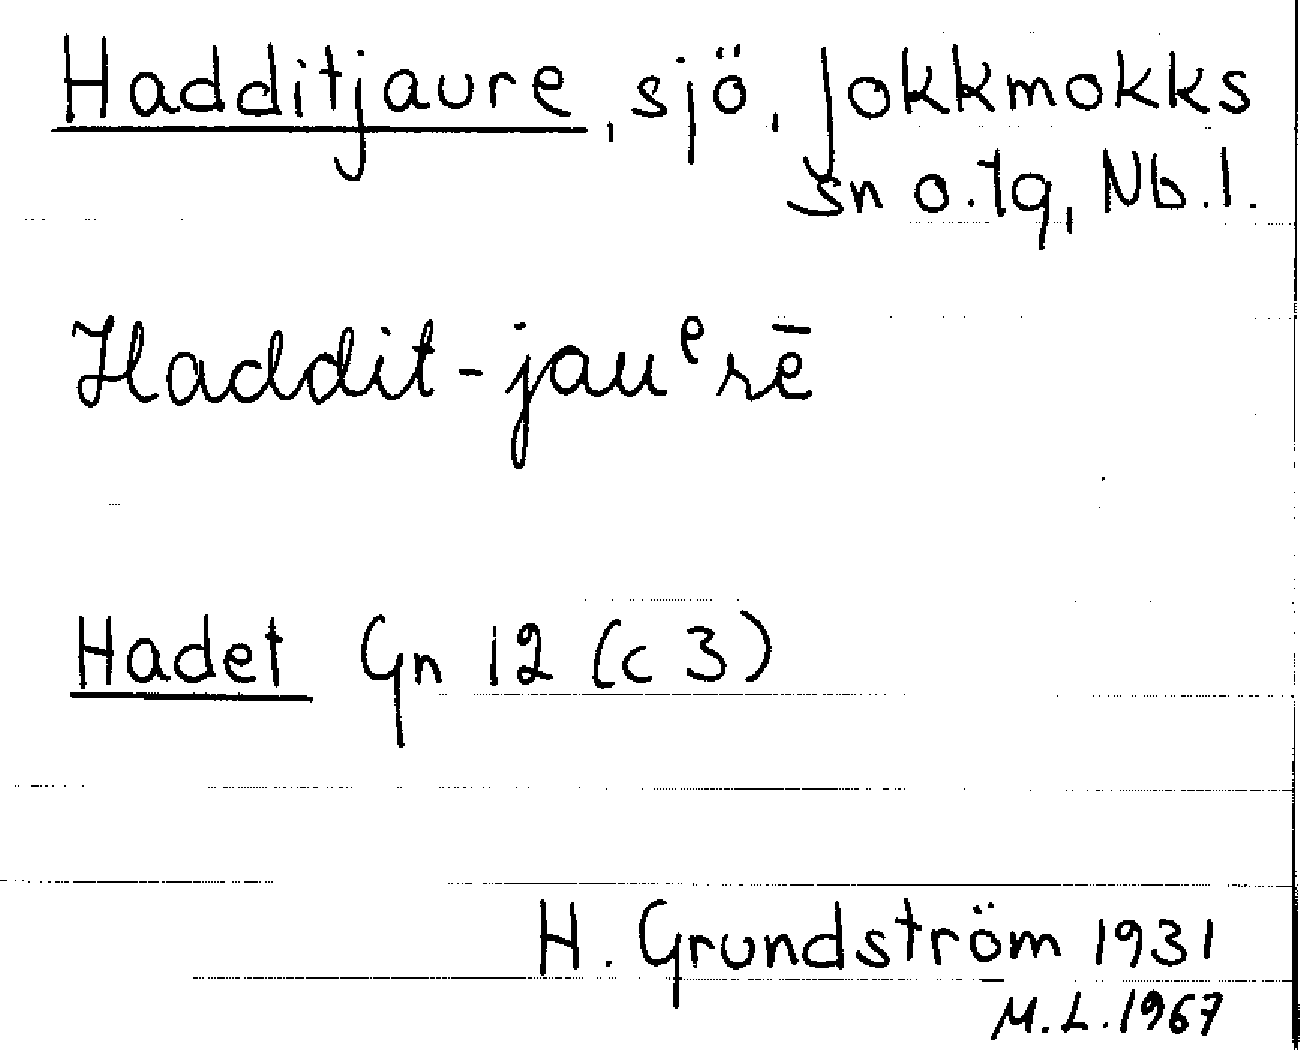 Hadditjaure, sjö, Jokkmokks
sn o. tg, Nb. l.
Haddit-jauᵉrē
Hadet Gn 12 (c 3)
H. Grundström 1931
M.L. 1967